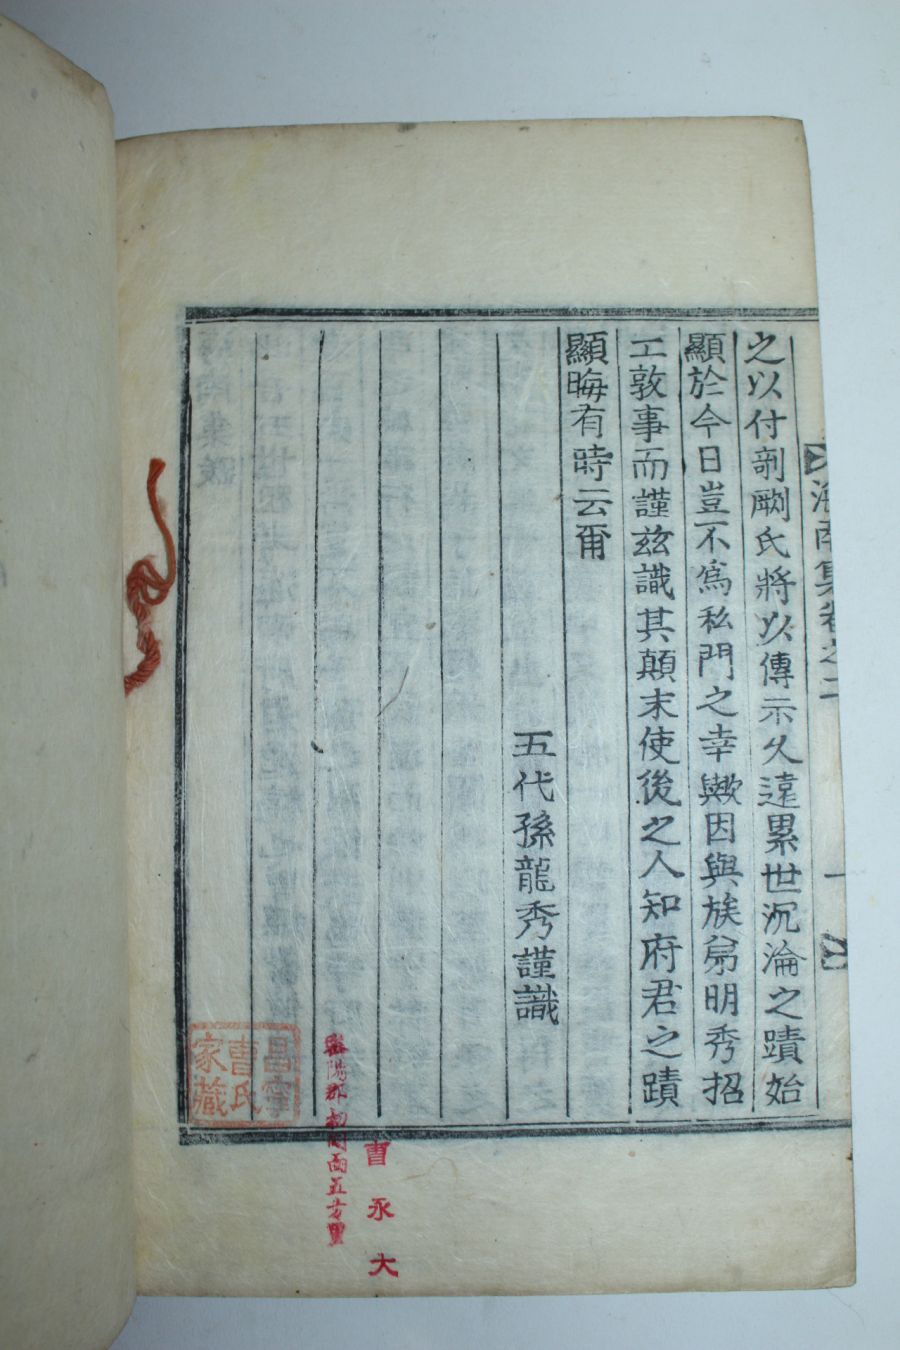 海南集卷之二
一
之以付剞劂氏將以傳示久遠累世沉淪之蹟始
顯於今日豈不爲私門之幸歟因與族弟明秀招
工敦事而謹玆識其顛末使後之人知府君之蹟
顯晦有時云爾
五代孫龍秀謹識
昌寧
曺氏
家藏
曺永大
潭陽郡南面五